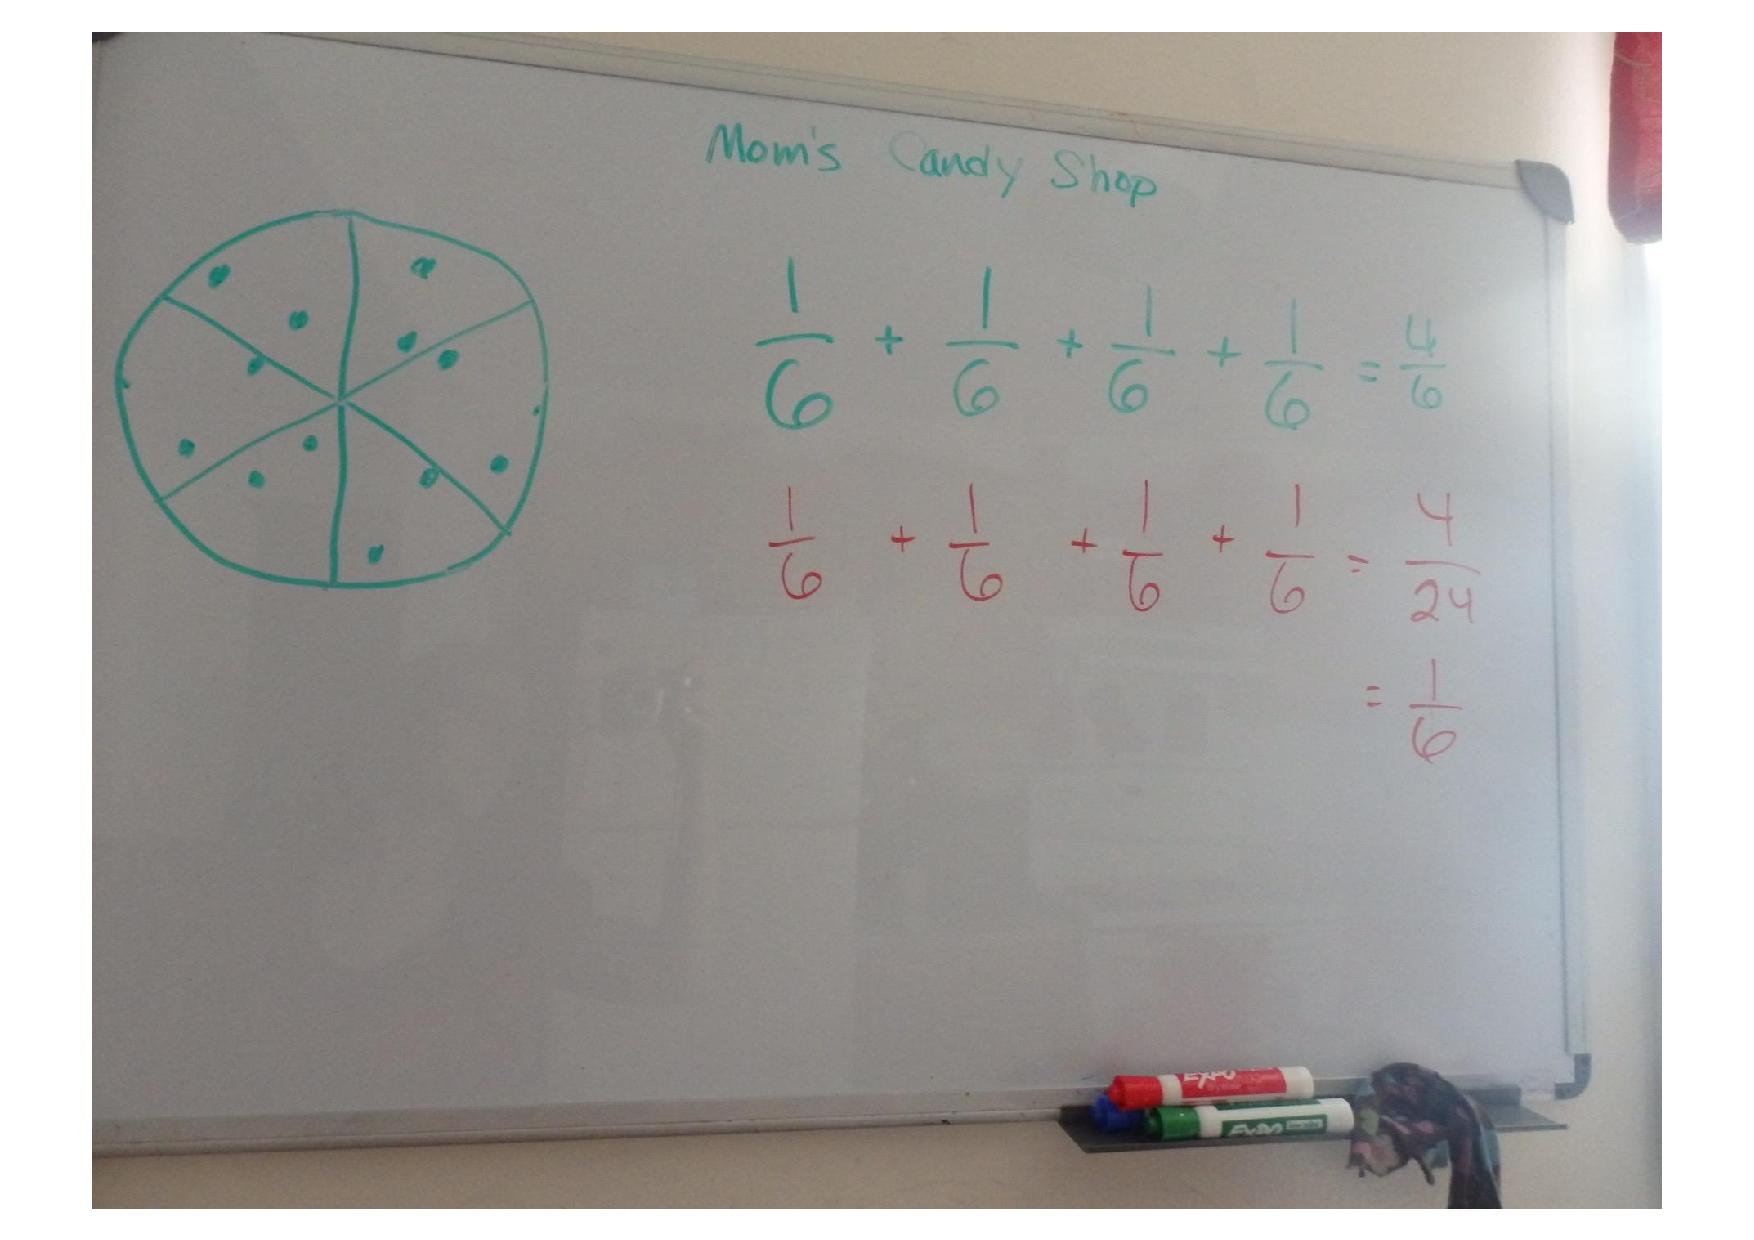 Mom's Candy Shop
1/6 + 1/6 + 1/6 + 1/6 = 4/6
1/6 + 1/6 + 1/6 + 1/6 = 4/24
= 1/6
EXPO
EXPO